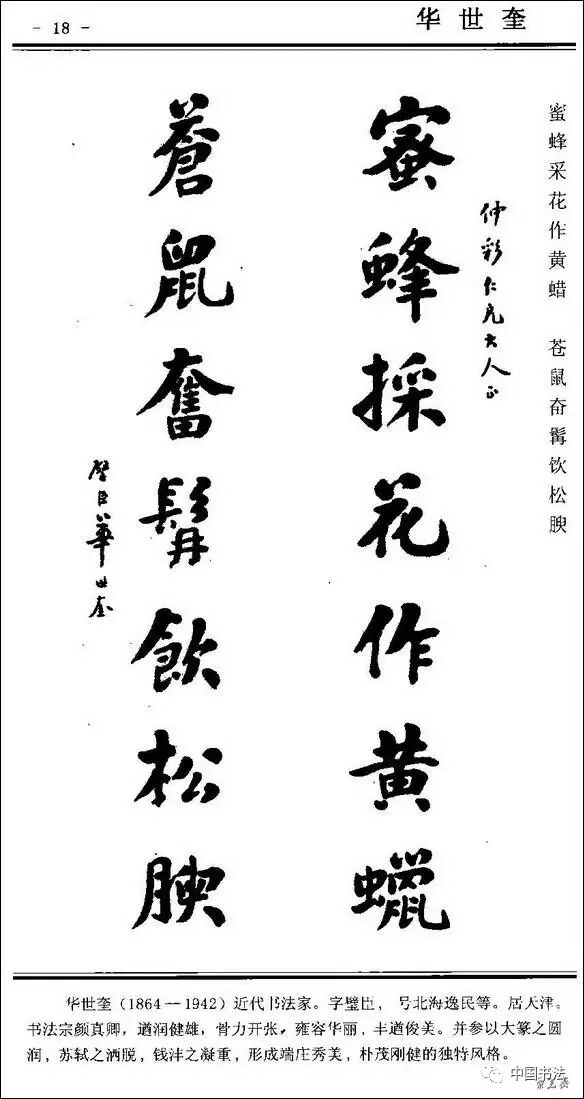 - 18 -
华世奎
蜜蜂采花作黄蜡 苍鼠奋髯饮松腴
仲彩仁兄大人正
蜜蜂採花作黄蠟
蒼鼠奮髯飲松腴
璧臣華世奎
华世奎（1864—1942）近代书法家。字璧臣，号北海逸民等。居天津。
书法宗颜真卿，遒润健雄，骨力开张，雍容华丽，丰遒俊美。并参以大篆之圆
润，苏轼之洒脱，钱沣之凝重，形成端庄秀美，朴茂刚健的独特风格。
中国书法